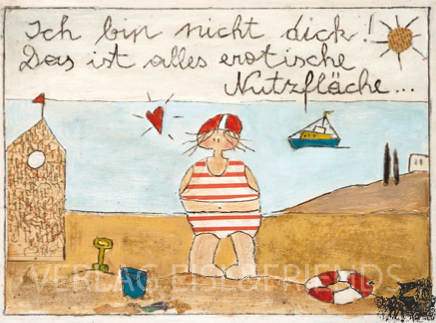 Ich bin nicht dick!
Das ist alles erotische
Nutzfläche...
VERLAG EISI & FRIENDS